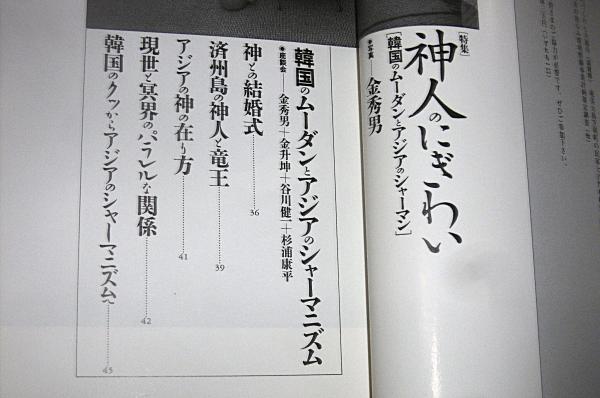 [特集]
神人のにぎわい
[韓国のムーダンとアジアのシャーマン]
●写真 金秀男
韓国のムーダンとアジアのシャーマニズム
●座談会 金秀男+金升坤+谷川健一+杉浦康平
神との結婚式 36
済州島の神人と竜王 39
アジアの神の在り方 41
現世と冥界のパラレルな関係 42
韓国のクッからアジアのシャーマニズムへ 45